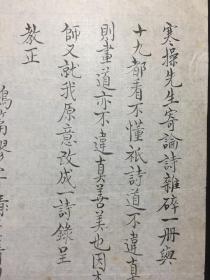 寒操先生寄論詩雜碎一冊與
十九都看不懂祇詩道不違真
則畫道亦不違真善美也因
師又就我原意改成詩錄呈
教正